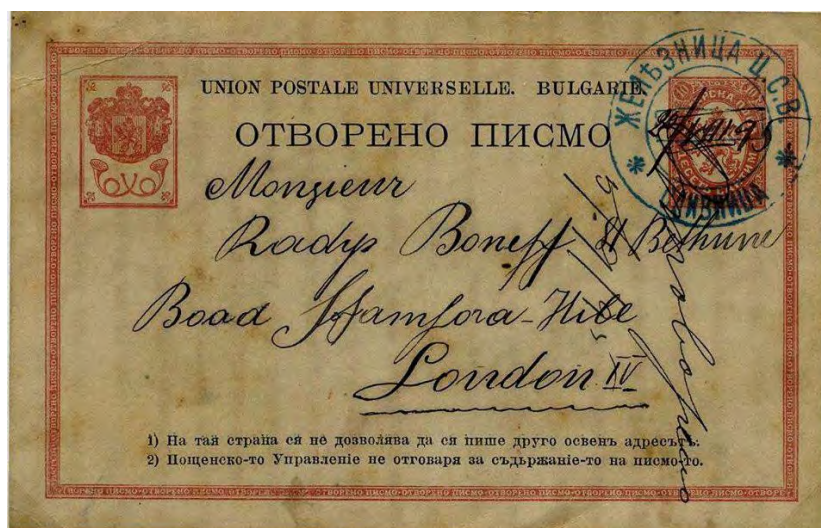 UNION POSTALE UNIVERSELLE. BULGARIE.
ОТВОРЕНО ПИСМО
ЖЕЛѢЗНИЦА Ц.С.В.
СЛИВНИЦА
Monsieur
Radys Boneff St Bethune
Boad Stamfora-Hibe
London IV
1) На тая страна ся не дозволява да ся пише друго освенъ адресътъ.
2) Пощенско-то Управление не отговаря за съдържание-то на писмо-то.